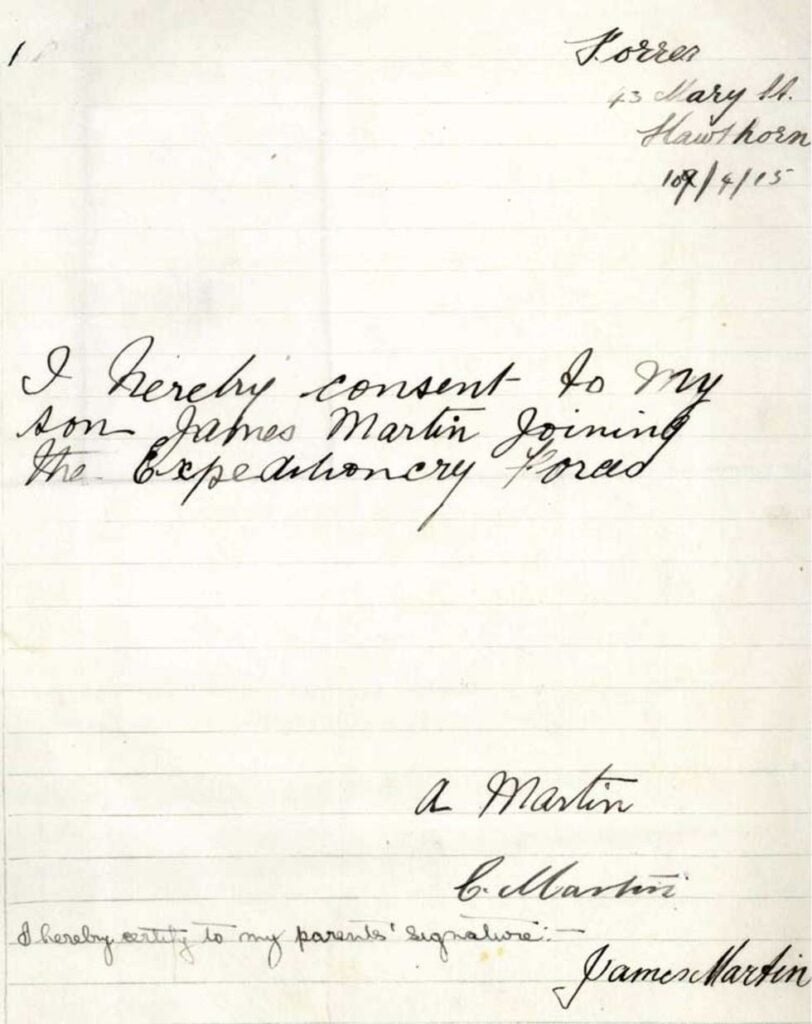 Forres
43 Mary St.
Hawthorn
/4/15
I hereby consent to my
son James Martin Joining
the Expeditionery Forces
A Martin
C. Martin
I hereby certify to my parents' signature:—
James Martin